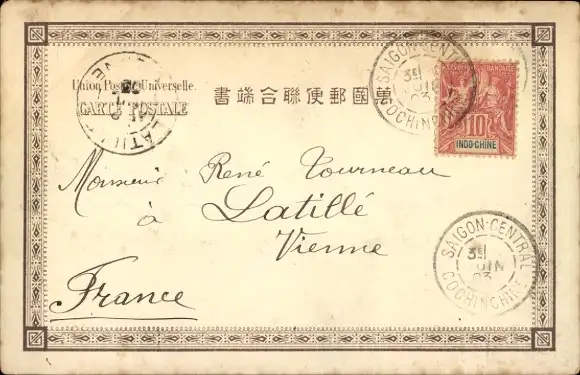 Union Postale Universelle.
CARTE POSTALE
書端合聯便郵國萬
SAIGON-CENTRAL
COCHINCHINE
10
INDO-CHINE
Monsieur René Tourneau
à Latillé
Vienne
France
SAIGON-CENTRAL
3E
JUIN
03
COCHINCHINE